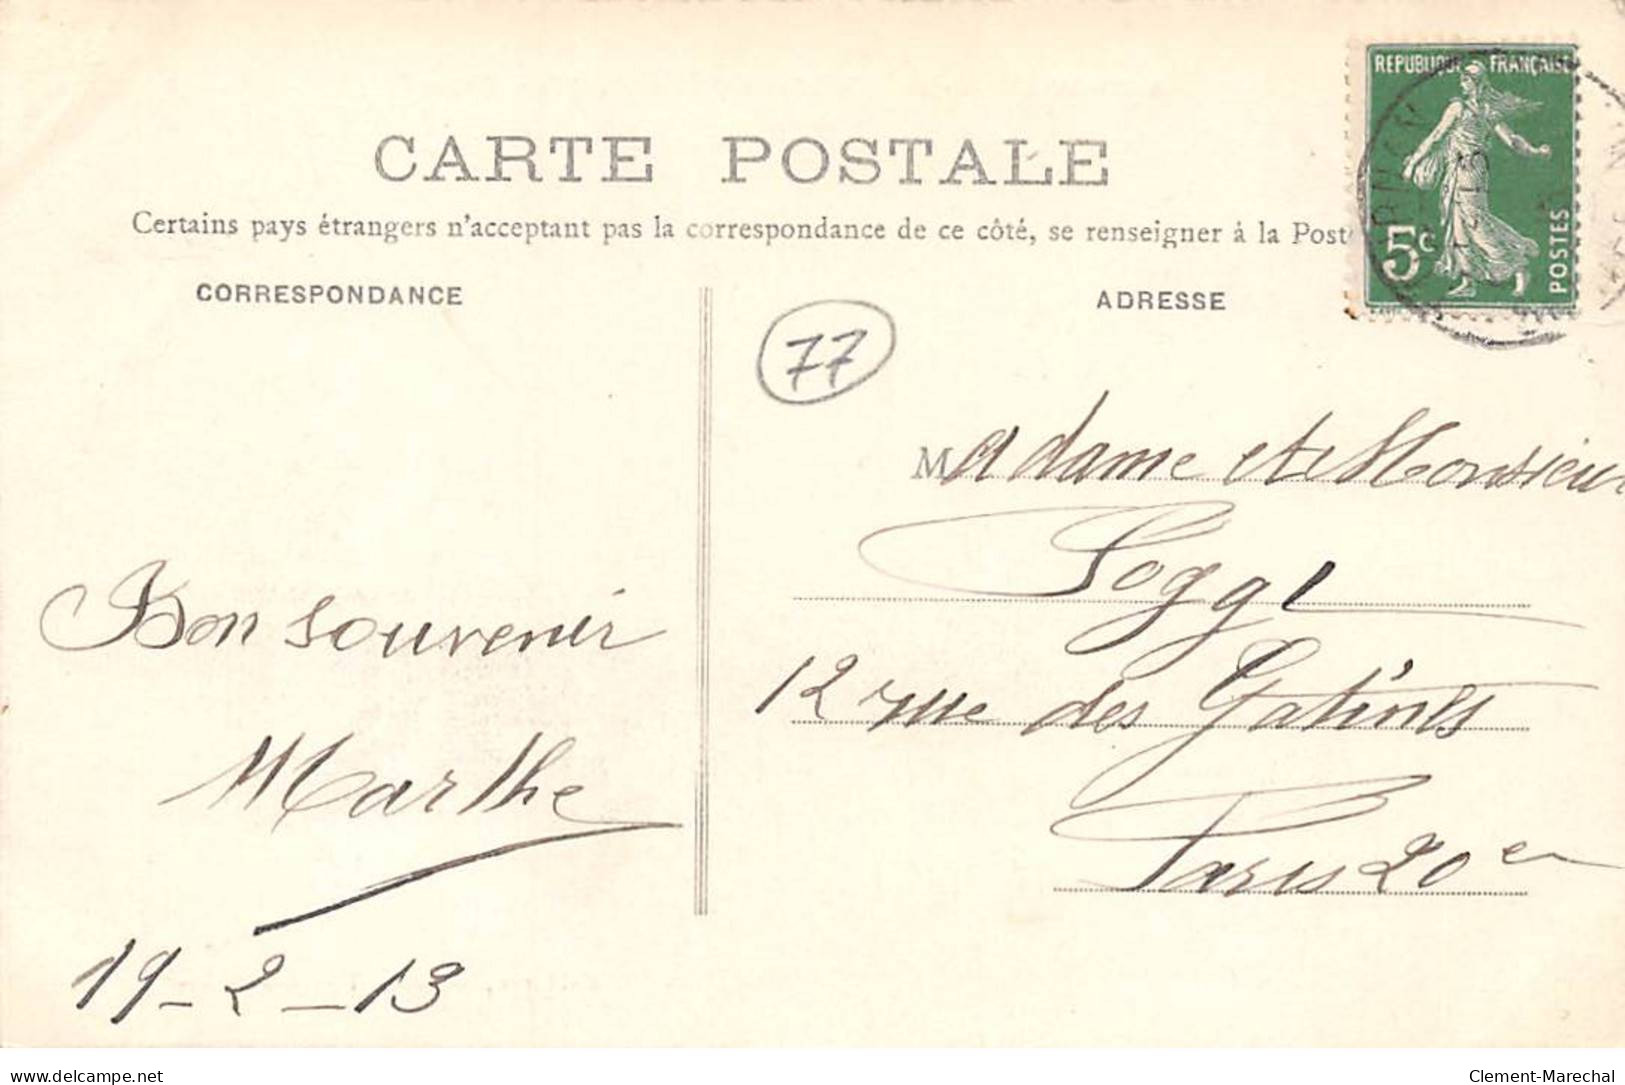 CARTE POSTALE
Certains pays étrangers n'acceptant pas la correspondance de ce côté, se renseigner à la Post
CORRESPONDANCE
ADRESSE
REPUBLIQUE FRANÇAISE
5c
POSTES
77
Madame et Monsieur
Poggi
12 rue des Gatines
Paris 20er
Bon souvenir
Marthe
19-2-13
delcampe.net
Clement-Marechal